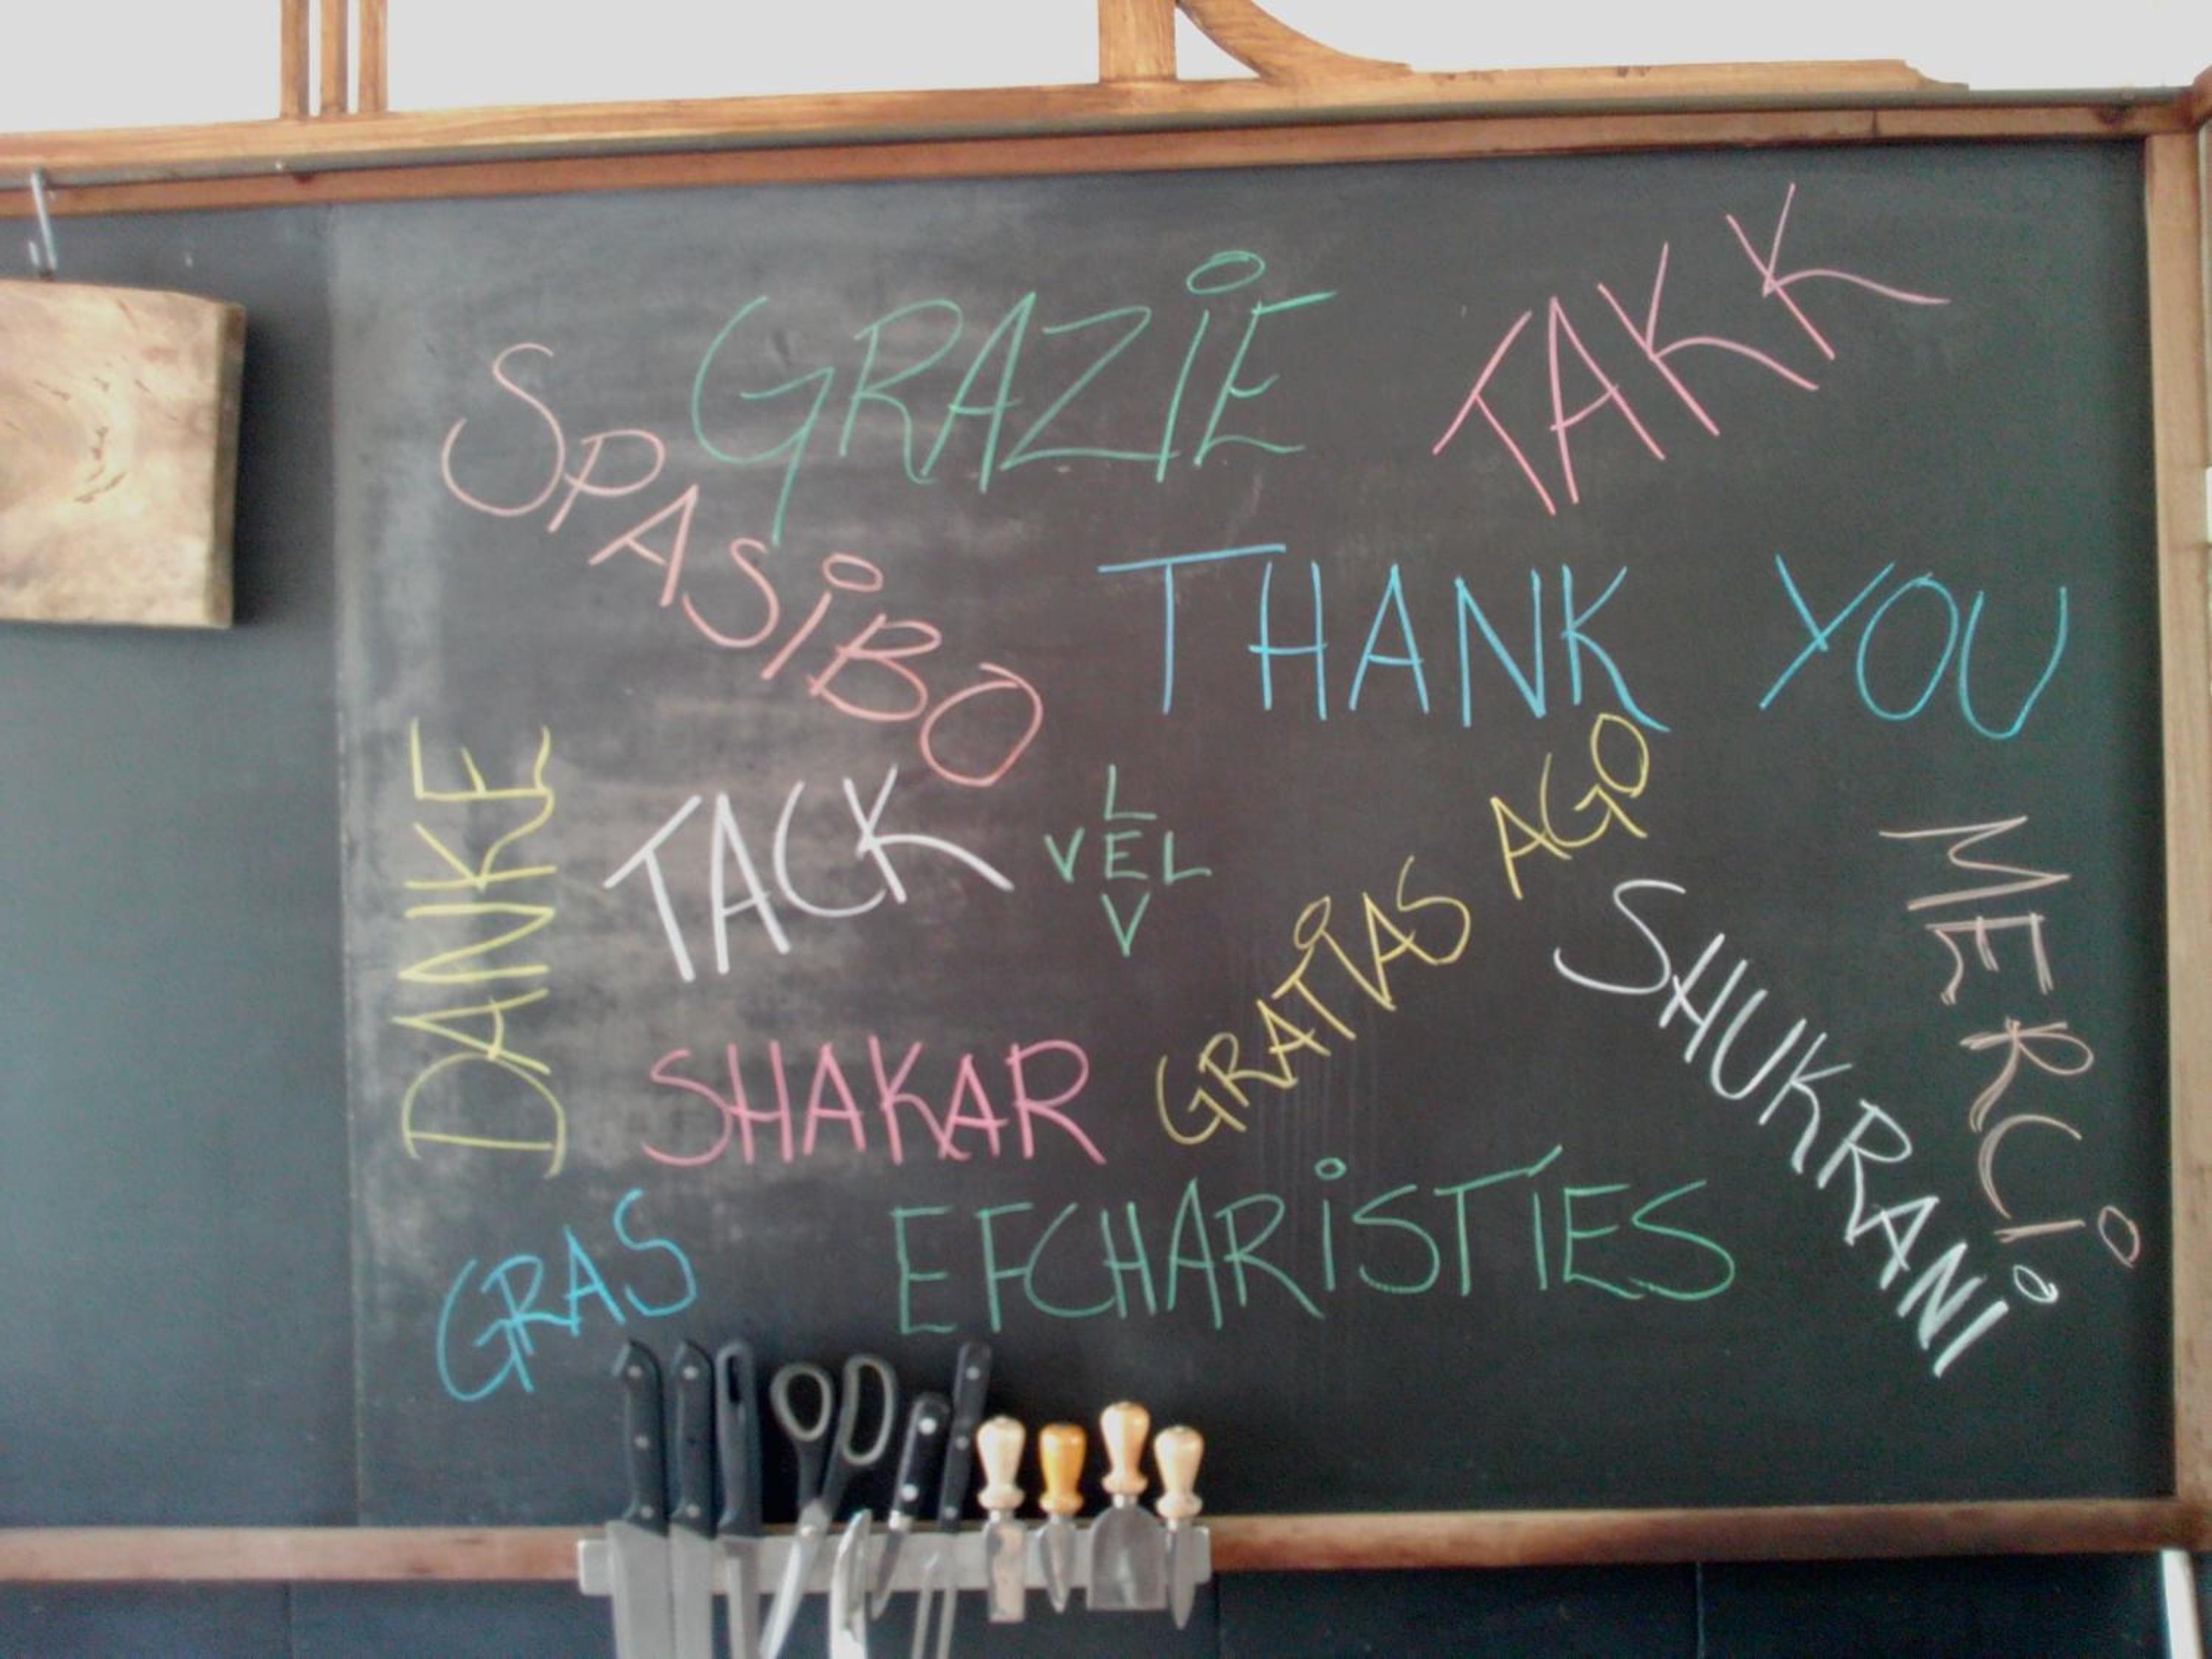 GRAZiE
TAKK
SPASiBO
THANK YOU
DANKE
TACK
L
VEL
V
GRATiAS AGO
MERCi
SHUKRANi
SHAKAR
GRAS
EFCHARiSTÍES